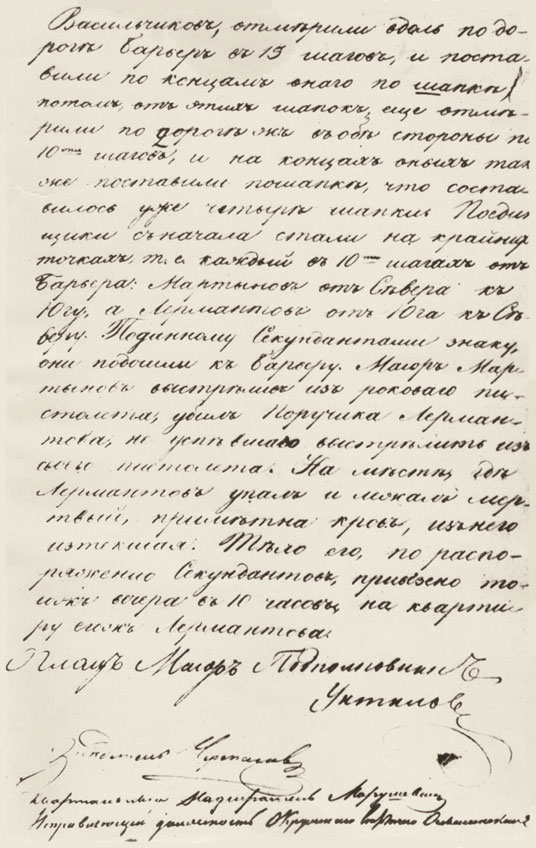 Васильчиковъ, отмѣрили вдоль по до-
рогѣ барьеръ въ 15 шаговъ, и поста-
вили по концамъ онаго по шапкѣ,
потомъ, отъ этихъ шапокъ, еще отмѣ-
рили по дорогѣ жъ въ обѣ стороны по
10ᵗⁱ шаговъ, и на концахъ оныхъ так
же поставили пошапкѣ, что соста-
вилось уже четыре шапки. Поедин
щики съначала стали на крайнихъ
точкахъ, т.е. каждый въ 10 шагахъ отъ
барьера: Мантыновъ отъ Сѣвера къ
Югу, а Лермантовъ отъ Юга къ Сѣ-
веру. Поданному Секундантами знаку,
они подошли къ барьеру. Маіоръ Мар-
тыновъ выстрѣливъ изъ роковаго пи-
столета, убилъ Поручика Лерман-
това, не успѣвшаго выстрѣлить изъ
своего пистолета. На мѣстѣ, гдѣ
Лермантовъ упалъ и лежалъ мер-
твый, примѣтна кровь, изънего
истекшая. Тѣло его, по распо-
ряженію Секундантовъ, привезено то-
гожъ вечера въ 10 часовъ, на кварти-
ру егожъ Лермантова.
Плацъ Маіоръ Подполковникъ
Унтиловъ
Черепановъ
Квартальный Надзиратель Марушевичъ
Исправляющій должность Окружнаго